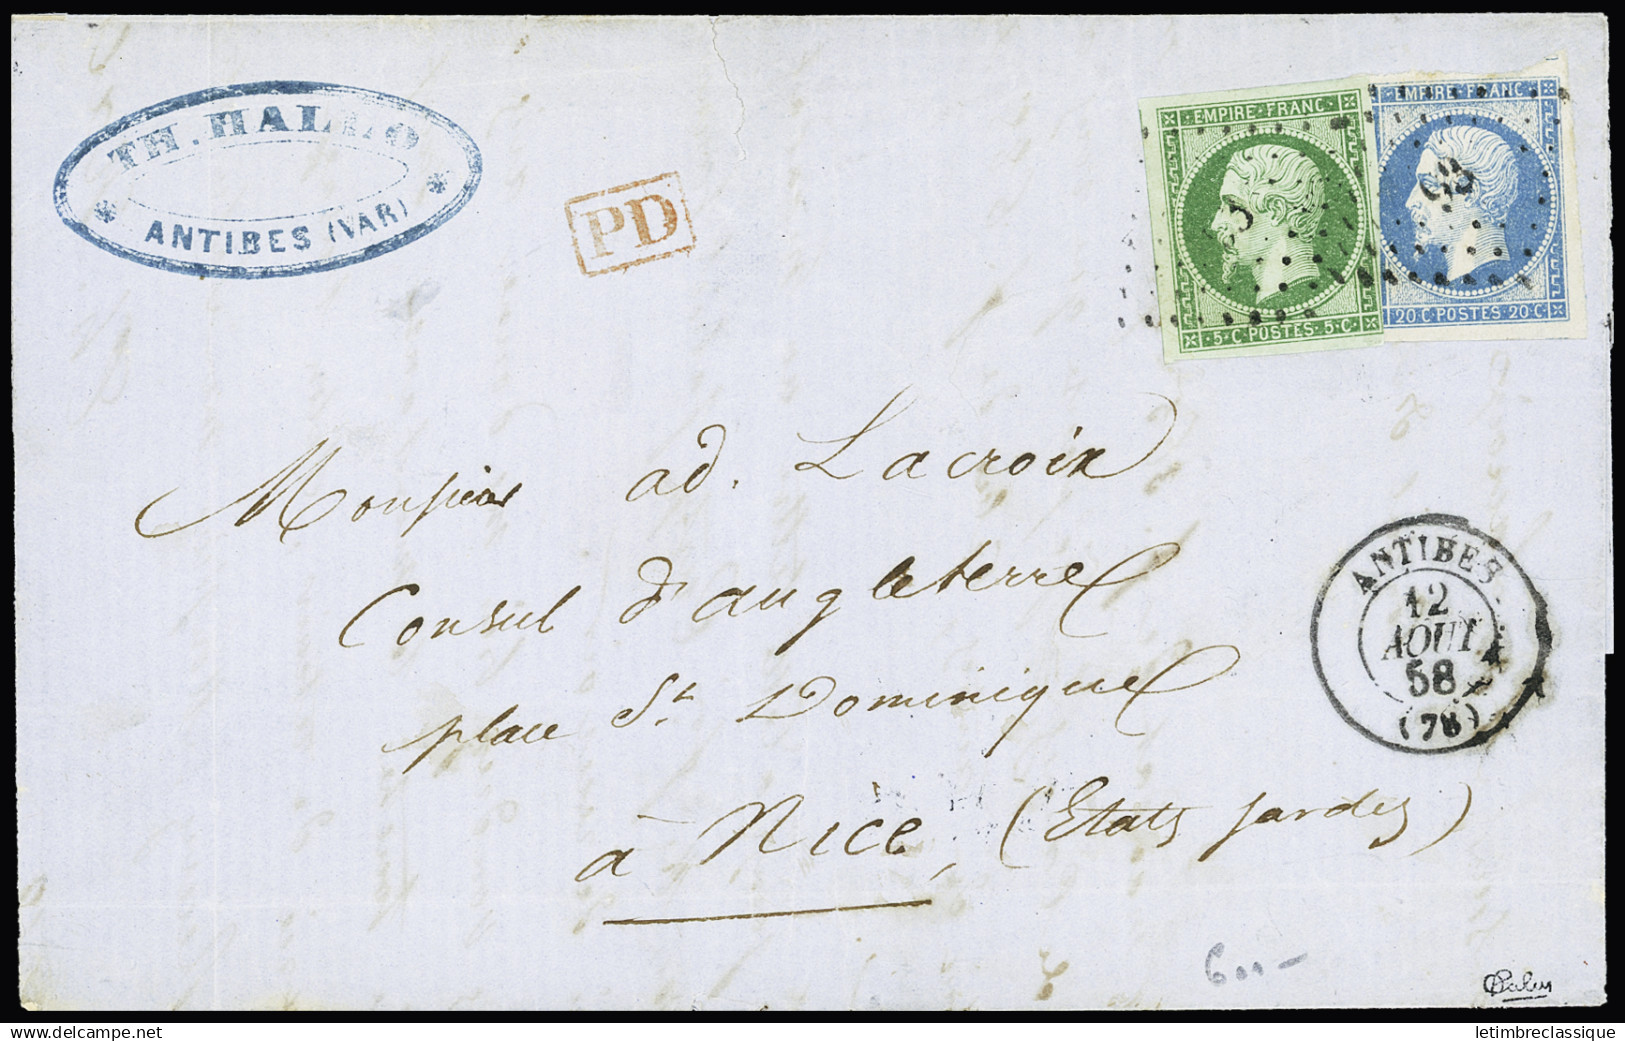 TH. HALLO
ANTIBES (VAR)
PD
EMPIRE · FRANC ·
5 · C · POSTES · 5 · C ·
EMPIRE · FRANC ·
20 · C · POSTES · 20 · C ·
Monsieur ad. Lacroix
Consul d'angleterre
place St. Dominique
à Nice, (Etats Sardes)
ANTIBES
12
AOUT
58
(78)
delcampe.net
letimbreclassique